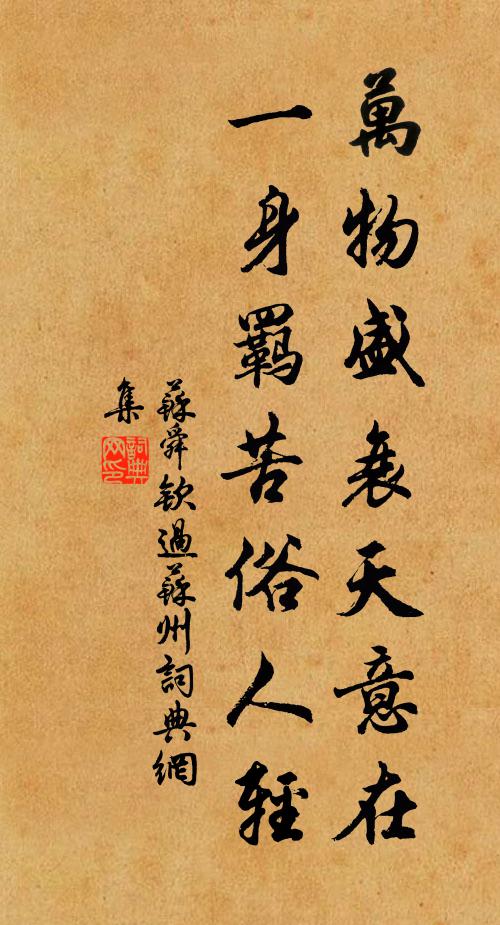 萬物盛衰天意在
一身羈苦俗人輕
蘇舜欽過蘇州詞典網
集
詞典網印